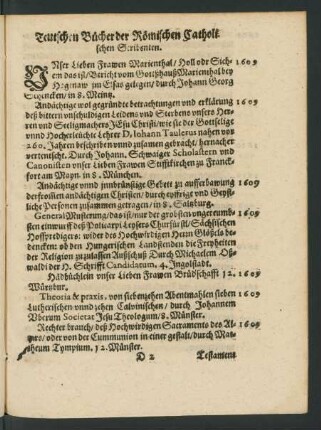 Teutschen Bücher der Römischen Catholi
schen Scribenten.
Unser Lieben Frawen Marienthal/ Holl oder Siech- 1609
en das ist/ Bericht vom Gottshauß Marienthal bey
Hagenaw im Elsas gelegen/ durch Johann Georg
in 8. Meintz.
Andächtige wol gegründte betrachtungen vnd erklärung 1609
deß bittern vnschuldigen Leidens vnd Sterbens vnsers Her-
ren vnd Seeligmachers JEsu Christi/ wie sie der Gottselige
vnnd Hocherleuchte Lehrer D. Iohann Taulerus nahen vor
260. Jahren beschriben vnnd zusamen gebracht, hernacher
vertenscht. Durch Johann. Schwaiger Scholastern vnd
Canonisten vnser Lieben Frawen Stifftkirchen zu Franck-
fort am Mayn. in 8. München.
Andächtige vnnd innbrünstige Gebett zu aufferbawung 1609
der frostlen andächtigen Christen/ durch eyffrige vnd Geyst-
liche Personen zusammen getragen/ in 8. Saltzburg.
General Musterung/ das ist/ nur der grobsten vngereumb- 1609
sten einwurff des Policarpi Leysers Churfürstl/ Sächsischen
Hoffpredigers: wider des Hochwürdigen Herrn Glößels be-
dencken: ob den Hungerischen Landstenden die Freyheiten
der Religion zuzulassen Außschuß Durch Michaelem Oß-
wald der H. Schrifft Candidatum. 4. Ingolstadt.
Hädbüchlein vnser Lieben Frawen Brüdschafft 12. 1609
Würtzbur.
Theoria & praxis. von siebentzehen Abentmahlen sieben 1609
Lutherischen vnnd zehen Calvinischen/ durch Johannem
Vberum Societat Iesu Theologum/ 8. Münster.
Rechter brauch/ deß Hochwirdigen Sacraments des Al- 1609
tars/ oder von der Communion in einer gestalt/ durch Mat-
theum Tympium. 12. Münster.
D 2 Testament